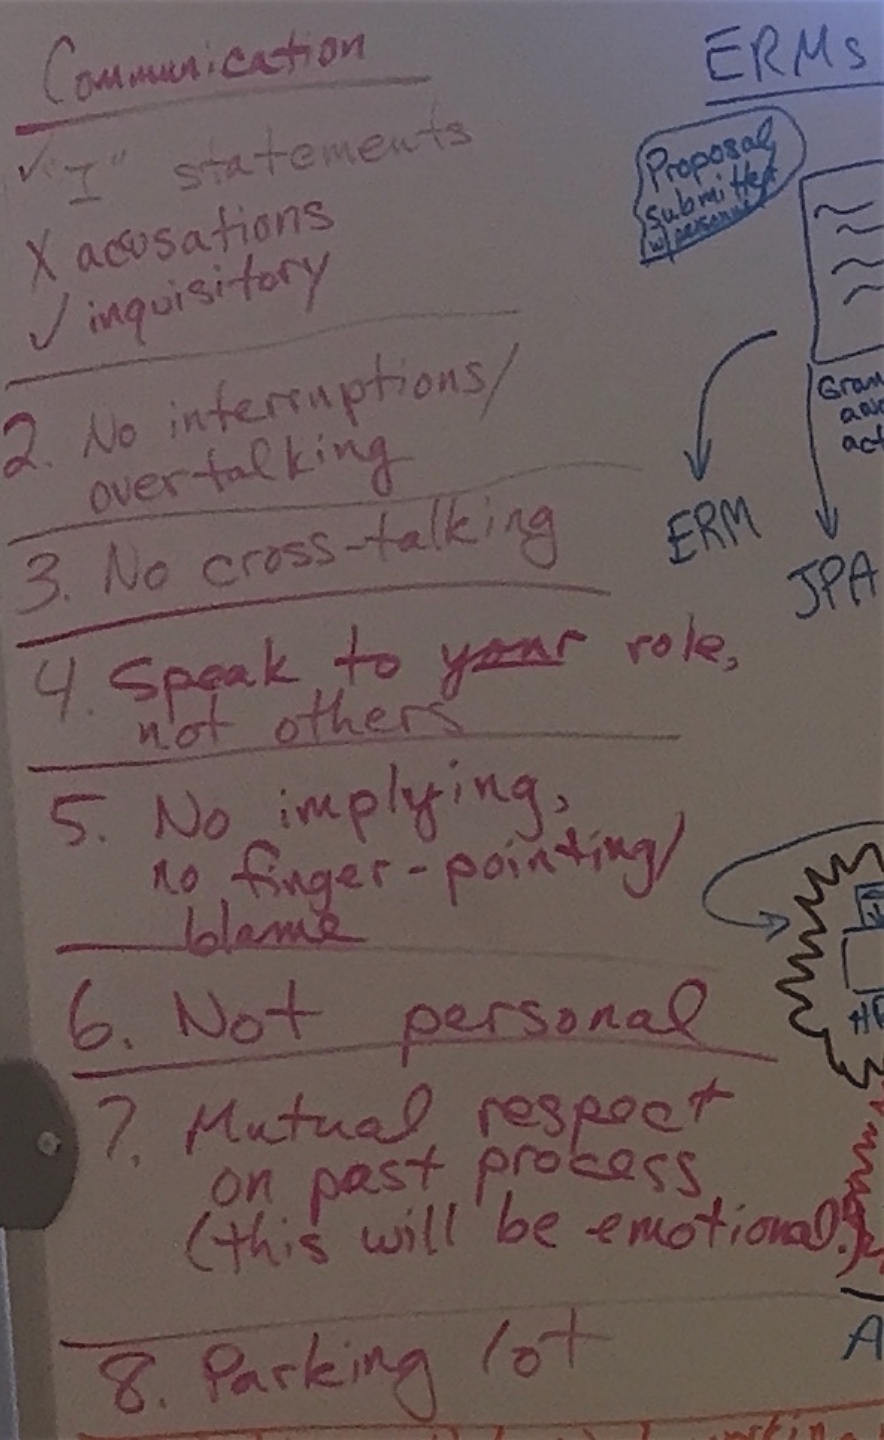 Communication
✓ "I" statements
X accusations
✓ inquisitory
2. No interruptions/
overtalking
3. No cross-talking
4. Speak to your role,
not others
5. No implying,
no finger-pointing/
blame
6. Not personal
7. Mutual respect
on past process
(this will be emotional.)
8. Parking lot
ERMs
Proposal
submitted
w/
ERM
JPA